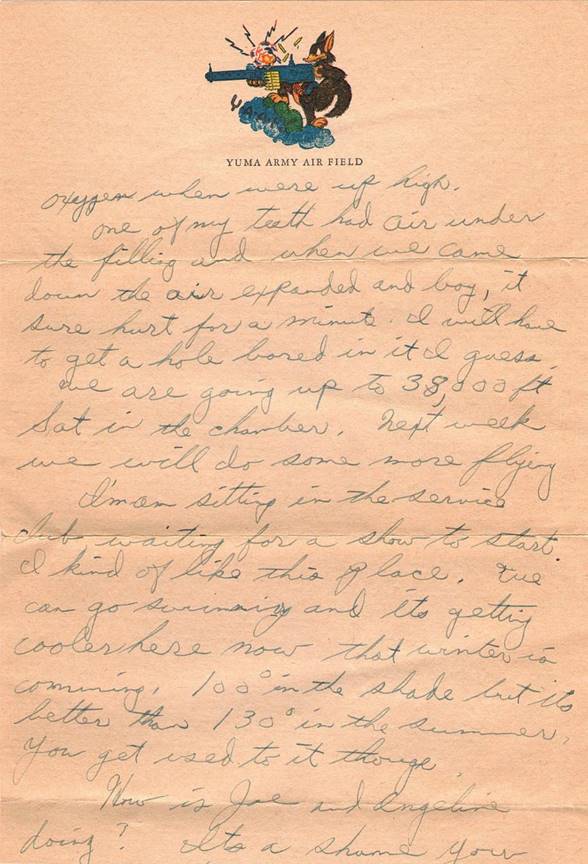 YUMA
YUMA ARMY AIR FIELD
oxygen when were up high.
One of my teeth had air under
the filling and when we came
down the air expanded and boy, it
sure hurt for a minute. I will have
to get a hole bored in it I guess.
We are going up to 38,000 ft
Sat in the chamber. Next week
we will do some more flying
I'm am sitting in the service
club waiting for a show to start.
I kind of like this place. We
can go swimming and its getting
cooler here now that winter is
comming. 100° in the shade but its
better than 130° in the summer.
You get used to it thouge
How is Joe and Angeline
doing? Its a shame your